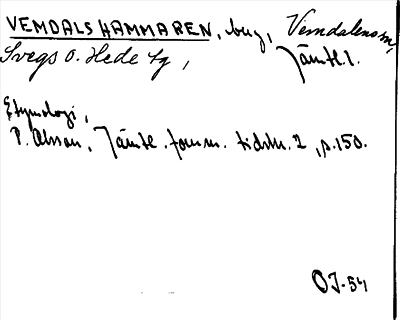 VEMDALSHAMMAREN, berg, Vemdalens sn,
Svegs o. Hede tg, Jämtl. l.
Etymologi,
P. Olsson, Jämtl. fornm. tidskr. 2, s. 150.
OJ-54